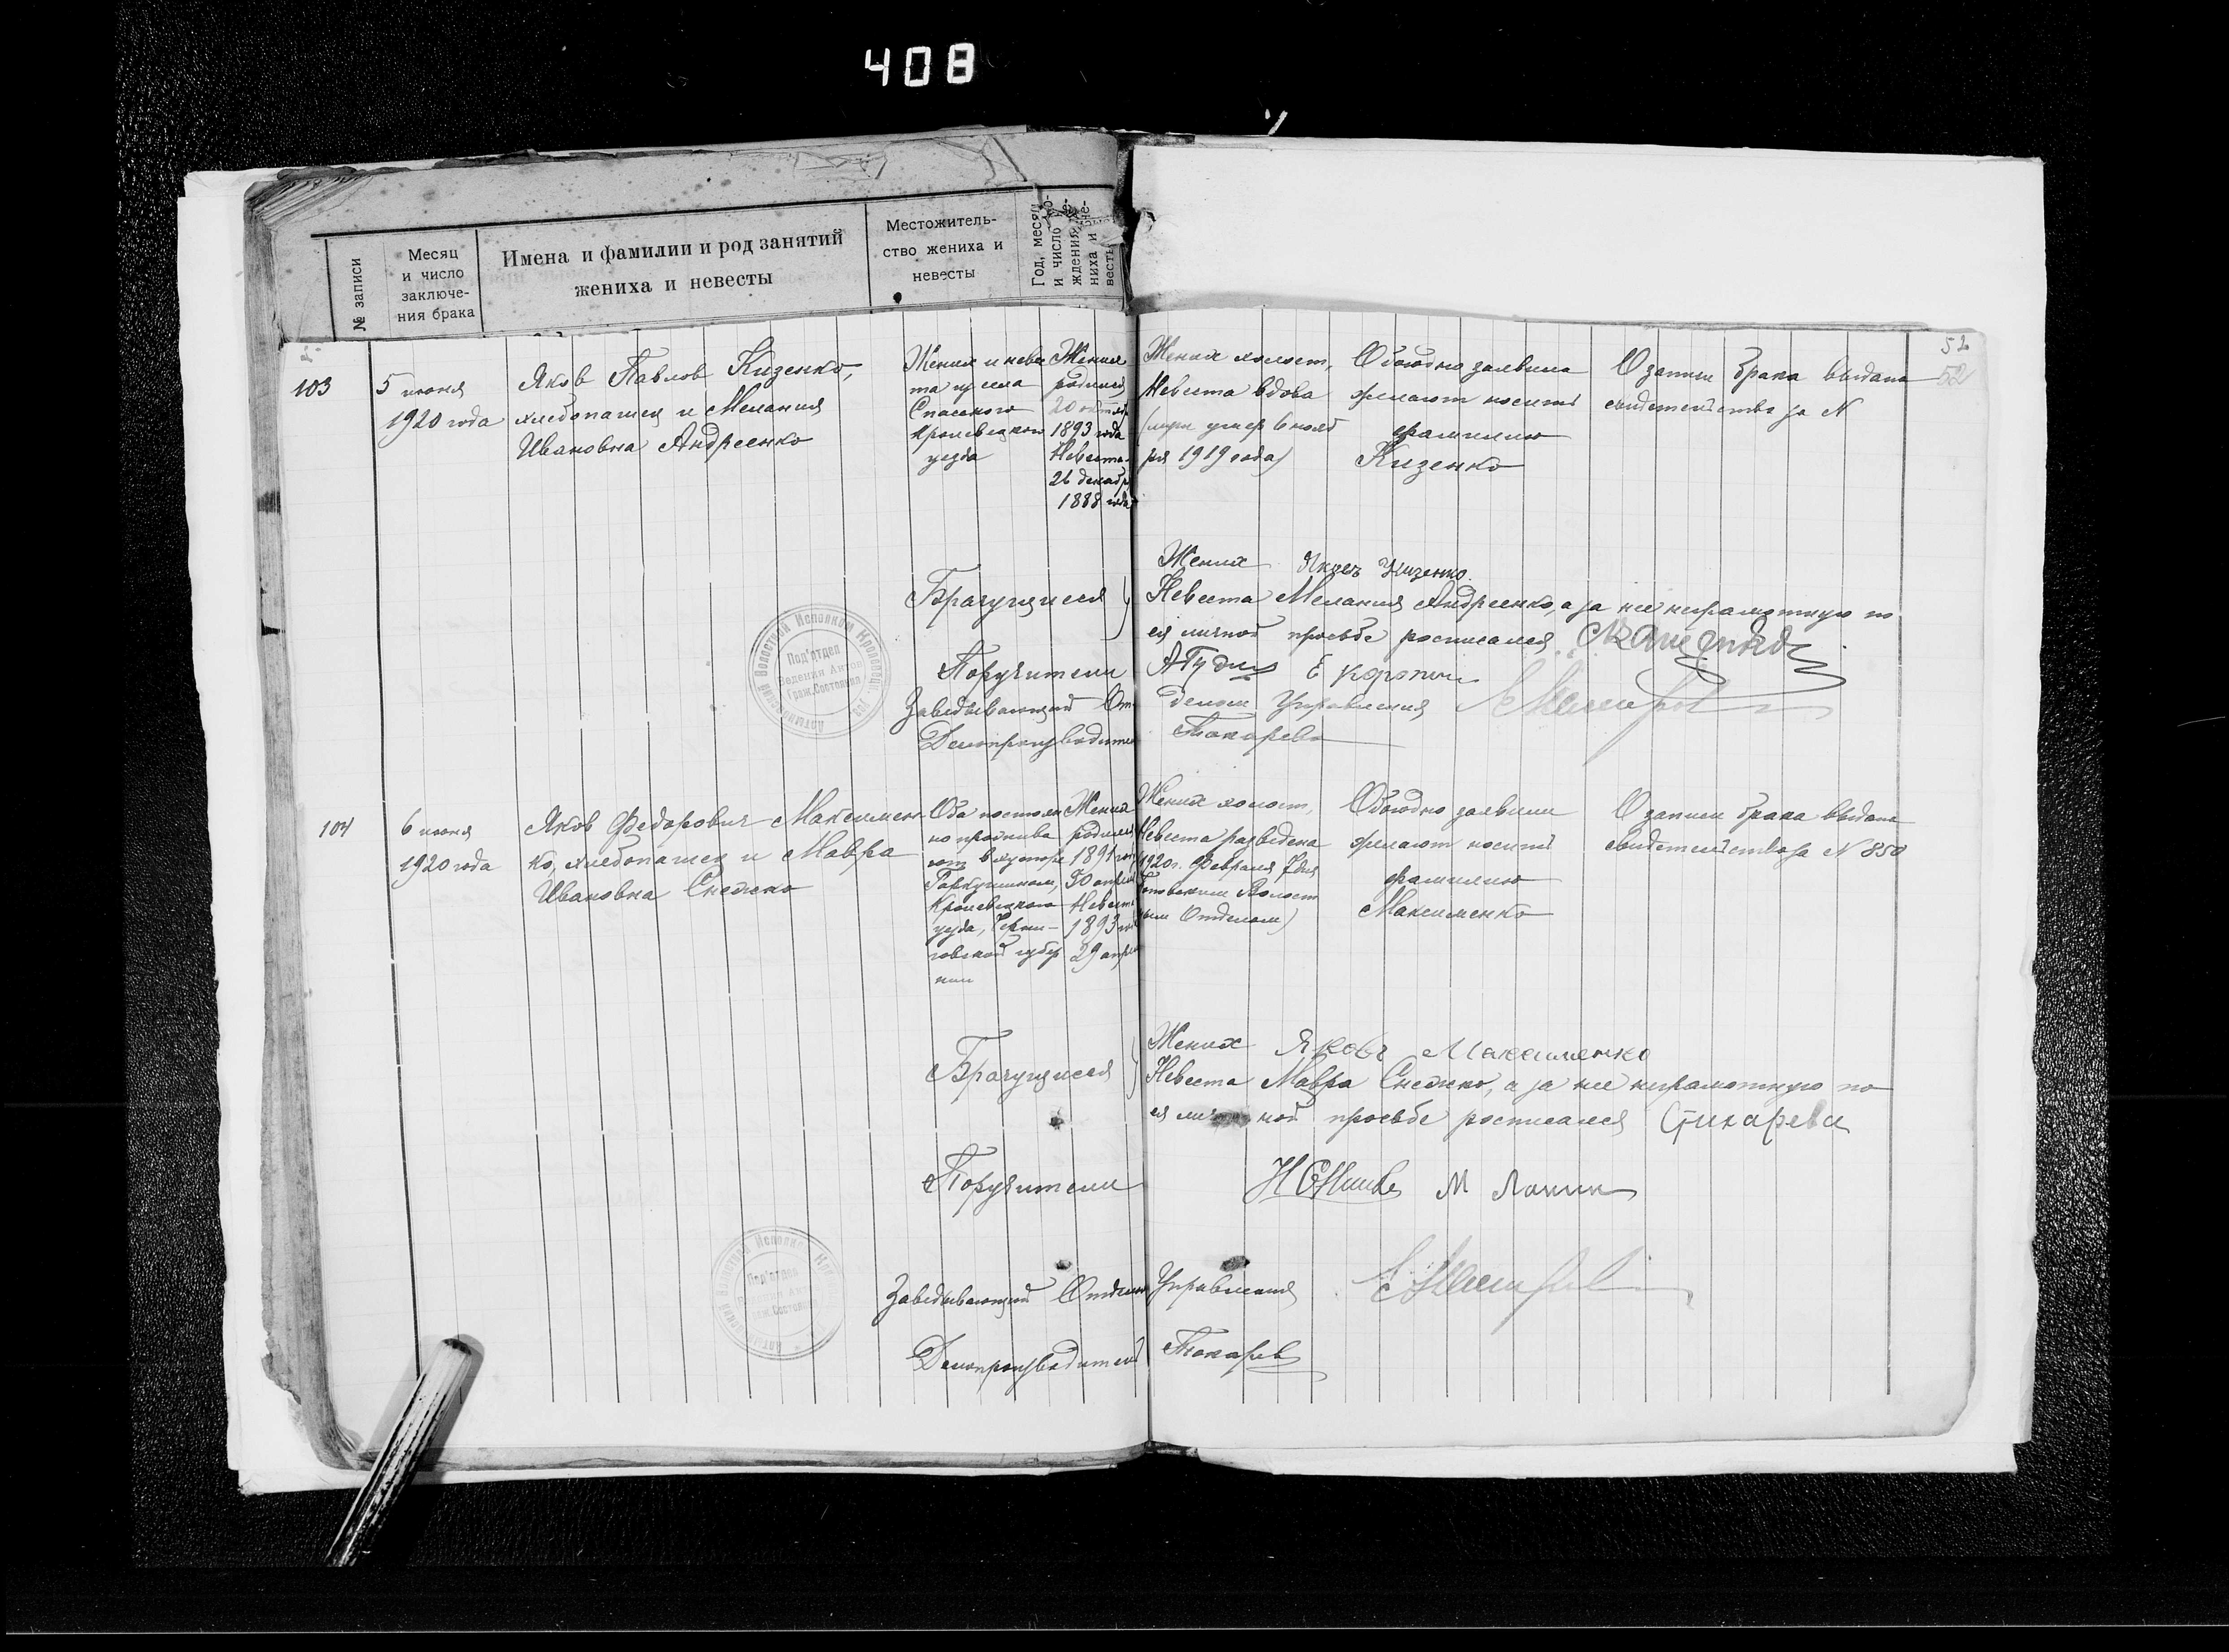 408
№ записи
Месяц
и число
заключе-
ния брака
Имена и фамилии и род занятий
жениха и невесты
Местожитель-
ство жениха и
невесты
Год, месяц
и число
ждения
ниха и
весты
52
52
103
5 июня
1920 года
Яков Павлов Кизенко,
хлебопашец и Мелания
Ивановна Андреенко
Жених и невес
та из села
Спасского
Кролевецкого
уезда
Жених
родился
20 октяб
1893 года
Невеста
26 декабр
1888 года
Жених холост,
Невеста вдова
(муж умер 6 нояб
ря 1919 года)
Обоюдно заявили
желают носить
фамилию
Кизенко
О записи брака выдано
свидетельство за N
Брачущиеся
Жених Яковъ Кизенко.
Невеста Мелания Андреенко, а за нее неграмотную по
ея личной просьбе росписался
Поручители
Заведывающий От
делом Управления
Делопроизводитель
Токарев
Алтыновский Волостной Исполком Кролевец.
Под'отдел
Ведения Актов
Граж.Состояния
104
6 июня
1920 года
Яков Федорович Максимен
ко, хлебопашец и Мавра
Ивановна Снежко
Оба постоян
но прожива
ют в хуторе
Кролевецкого
уезда, Черни-
говской губер
нии
Жених
родился
1891 го
30 апреля
Невеста
1893 го
29 апре
Жених холост,
Невеста разведена
1920 г. Февраля 7 дня
Волост
ным Отделом)
Обоюдно заявили
желают носить
фамилию
Максименко
О записи брака выдано
свидетельство за N 850
Брачущиеся
Жених Яковъ Максименко
Невеста Мавра Снежко, а за нее неграмотную по
ея личной просьбе росписался
Поручители
М
Заведывающий Отделом Управления
Делопроизводитель Токарев
Под'отдел
Граж.Состояния